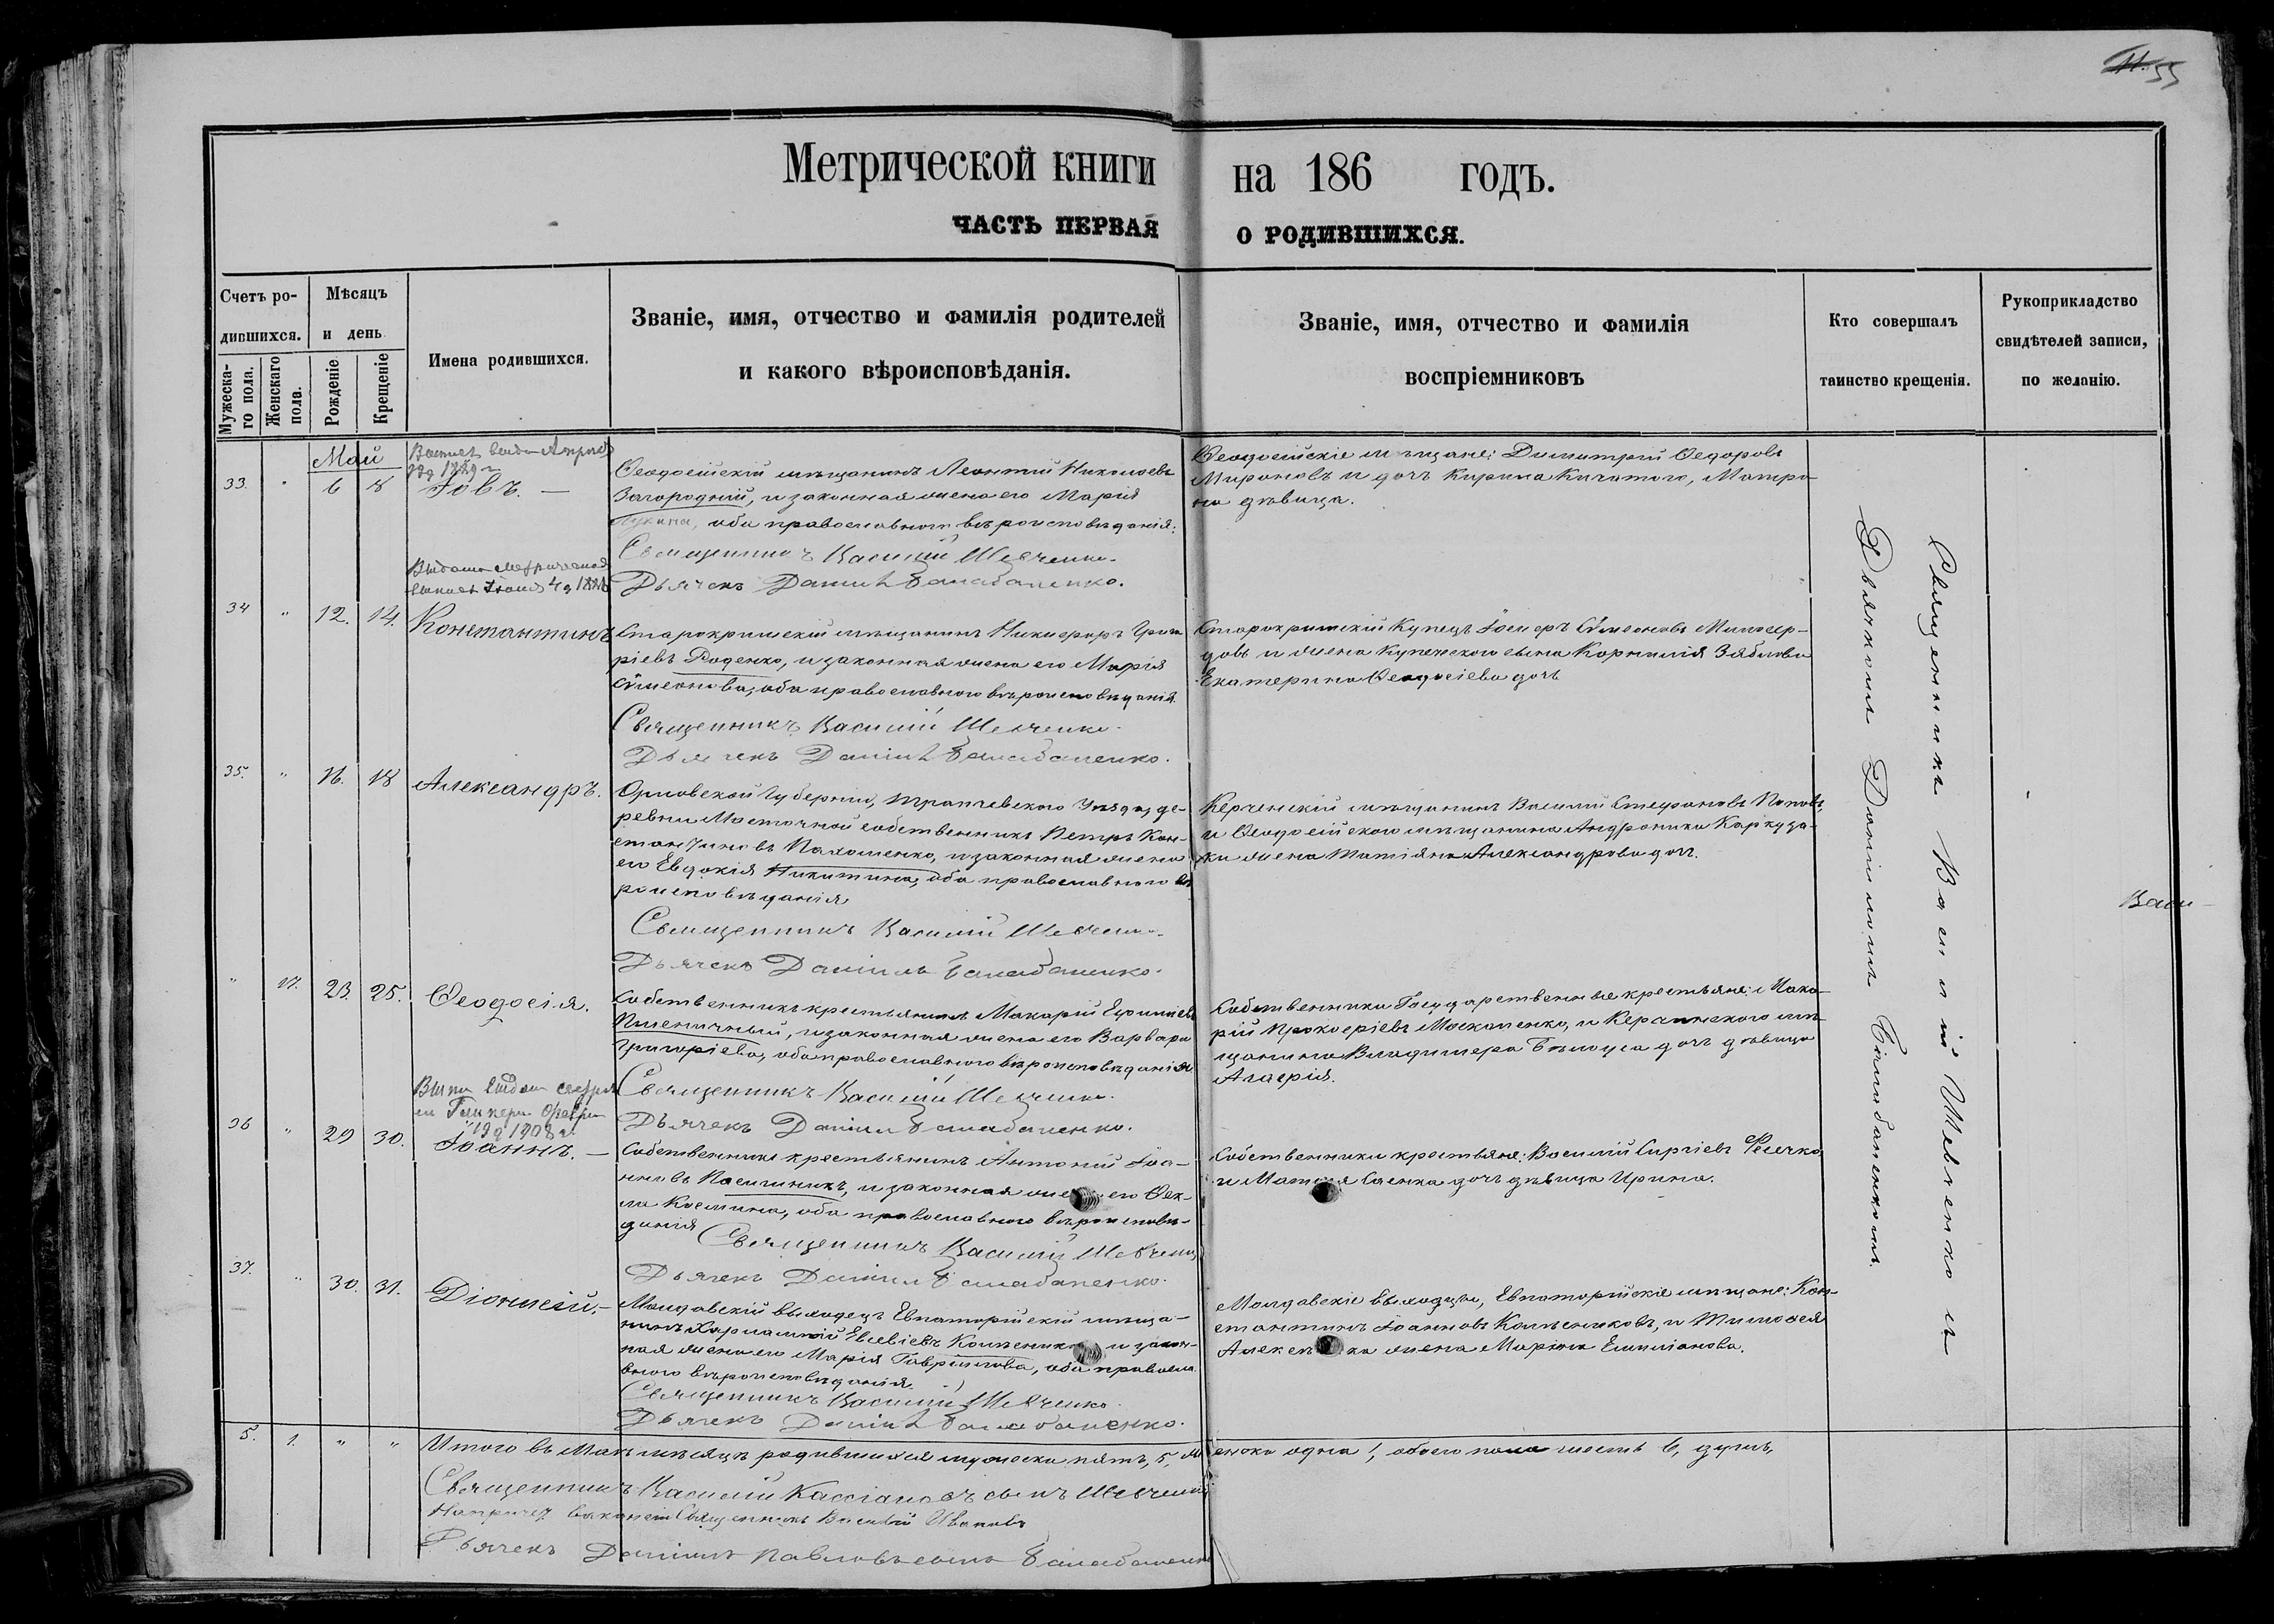 55
Метрической книги на 186 годъ.
ЧАСТЬ ПЕРВАЯ О РОДИВШИХСЯ.
Счетъ ро-
дившихся.
Мужеска-
го пола.
Женскаго
пола.
Мѣсяцъ
и день
Рожденіе
Крещеніе
Имена родившихся.
Званіе, имя, отчество и фамилія родителей
и какого вѣроисповѣданія.
Званіе, имя, отчество и фамилія
воспріемниковъ
Кто совершалъ
таинство крещенія.
Рукоприкладство
свидѣтелей записи,
по желанію.
Май
33. " 6 8 Іовъ. —
Ѳеодосійскій мѣщанинъ Леонтій Николаевъ
Загородній, и законная жена его Марія
Лукина, оба православнаго вѣроисповѣданія.
Священникъ Василій Шевченко.
Дьячекъ Даніилъ Балабаненко.
Ѳеодосійскіе мѣщане: Димитрій Ѳедоровъ
Мироновъ и дочь Кирила Кичатого, Матро-
на дѣвица.
34 " 12. 14. Константинъ
Старокримскій мѣщанинъ Никифоръ Григо
ріевъ Роденко, и законная жена его Марія
Сѵмеонова, оба православнаго вѣроисповѣданія.
Священникъ Василій Шевченко.
Дьячекъ Даніилъ Балабаненко.
Старокримскій Купецъ Іосифъ Сѵмеоновъ Милосер-
довъ и жена купеческого сына Корнилія Зяблова
Екатерина Ѳеодосіева дочь
35. " 16. 18 Александръ.
Орловской Губерніи, Трапчевского Уѣзда, де-
ревни Мосточной собственникъ Петръ Кон-
стантиновъ Пахоменко, и законная жена
его Евдокія Никитина, оба православнаго вѣ
роисповѣданія
Священникъ Василій Шевченко.
Дьячекъ Даніилъ Балабаненко.
Керченскій мѣщанинъ Василій Стефановъ Поповъ,
и Ѳеодосійского мѣщанина Андроника Каркуза-
ки жена Татіяна Александрова дочь.
" 11. 23. 25. Ѳеодосія.
Собственникъ крестьянинъ Макарій Ефимиевъ
Пшеничный, и законная жена его Варвара
Григоріева, оба православнаго вѣроисповѣданія.
Священникъ Василій Шевченко.
Дьячекъ Даніилъ Балабаненко.
Собственники Государственные крестьяне: Мака-
рій Прокофіевъ Москаленко, и мѣ-
щанина Владимера Бѣлоуса дочь дѣвица
Агафія.
36 " 29 30. Іоаннъ. —
Собственникъ крестьянинъ Антоній Іоа-
нновъ Пасичникъ, и законная жена его Ѳек-
ла Космина, оба православнаго вѣроисповѣ-
данія
Священникъ Василій Шевченко
Дьячекъ Даніилъ Балабаненко.
Собственники крестьяне: Василій Сергіевъ
и Матѳея Саенка дочь дѣвица Ирина.
37. " 30. 31. Діонисій. —
Молдавскій выходецъ Евпаторійскій мѣща-
нинъ Харлампій Евсевіевъ и закон-
ная жена его Марія Гавриилова, оба правосла
внаго вѣроисповѣданія.
Священникъ Василій Шевченко.
Дьячекъ Даніилъ Балабаненко.
Молдавскіе выходцы, Евпаторійскіе мѣщане: Кон-
стантинъ Іоанновъ и Тимоѳея
жена Марина Емиліанова.
Священникъ Василій Шевченко и
Дьячкомъ Даніиломъ Балабаненкомъ.
5. 1. " " Итого въ Маѣ мѣсяцѣ родившихся мужеска пять, 5, женска одна 1, обоего пола шесть 6, душъ.
Священникъ Василій Кассіановъ сынъ Шевченко
Священникъ Василій Ивановъ
Дьячекъ Даніилъ Павловъ сынъ Балабаненко